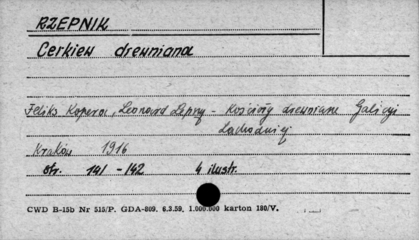 RZEPNIK
Cerkiew drewniana
Feliks Kopera, Leonard Lepszy - Kościoły drewniane Galicyi
Zachodniej
Kraków 1916
str. 141 - 142 4 ilustr.
CWD B-15b Nr 515/P. GDA-809. 6.3.59. 1.000.000 karton 180/V.